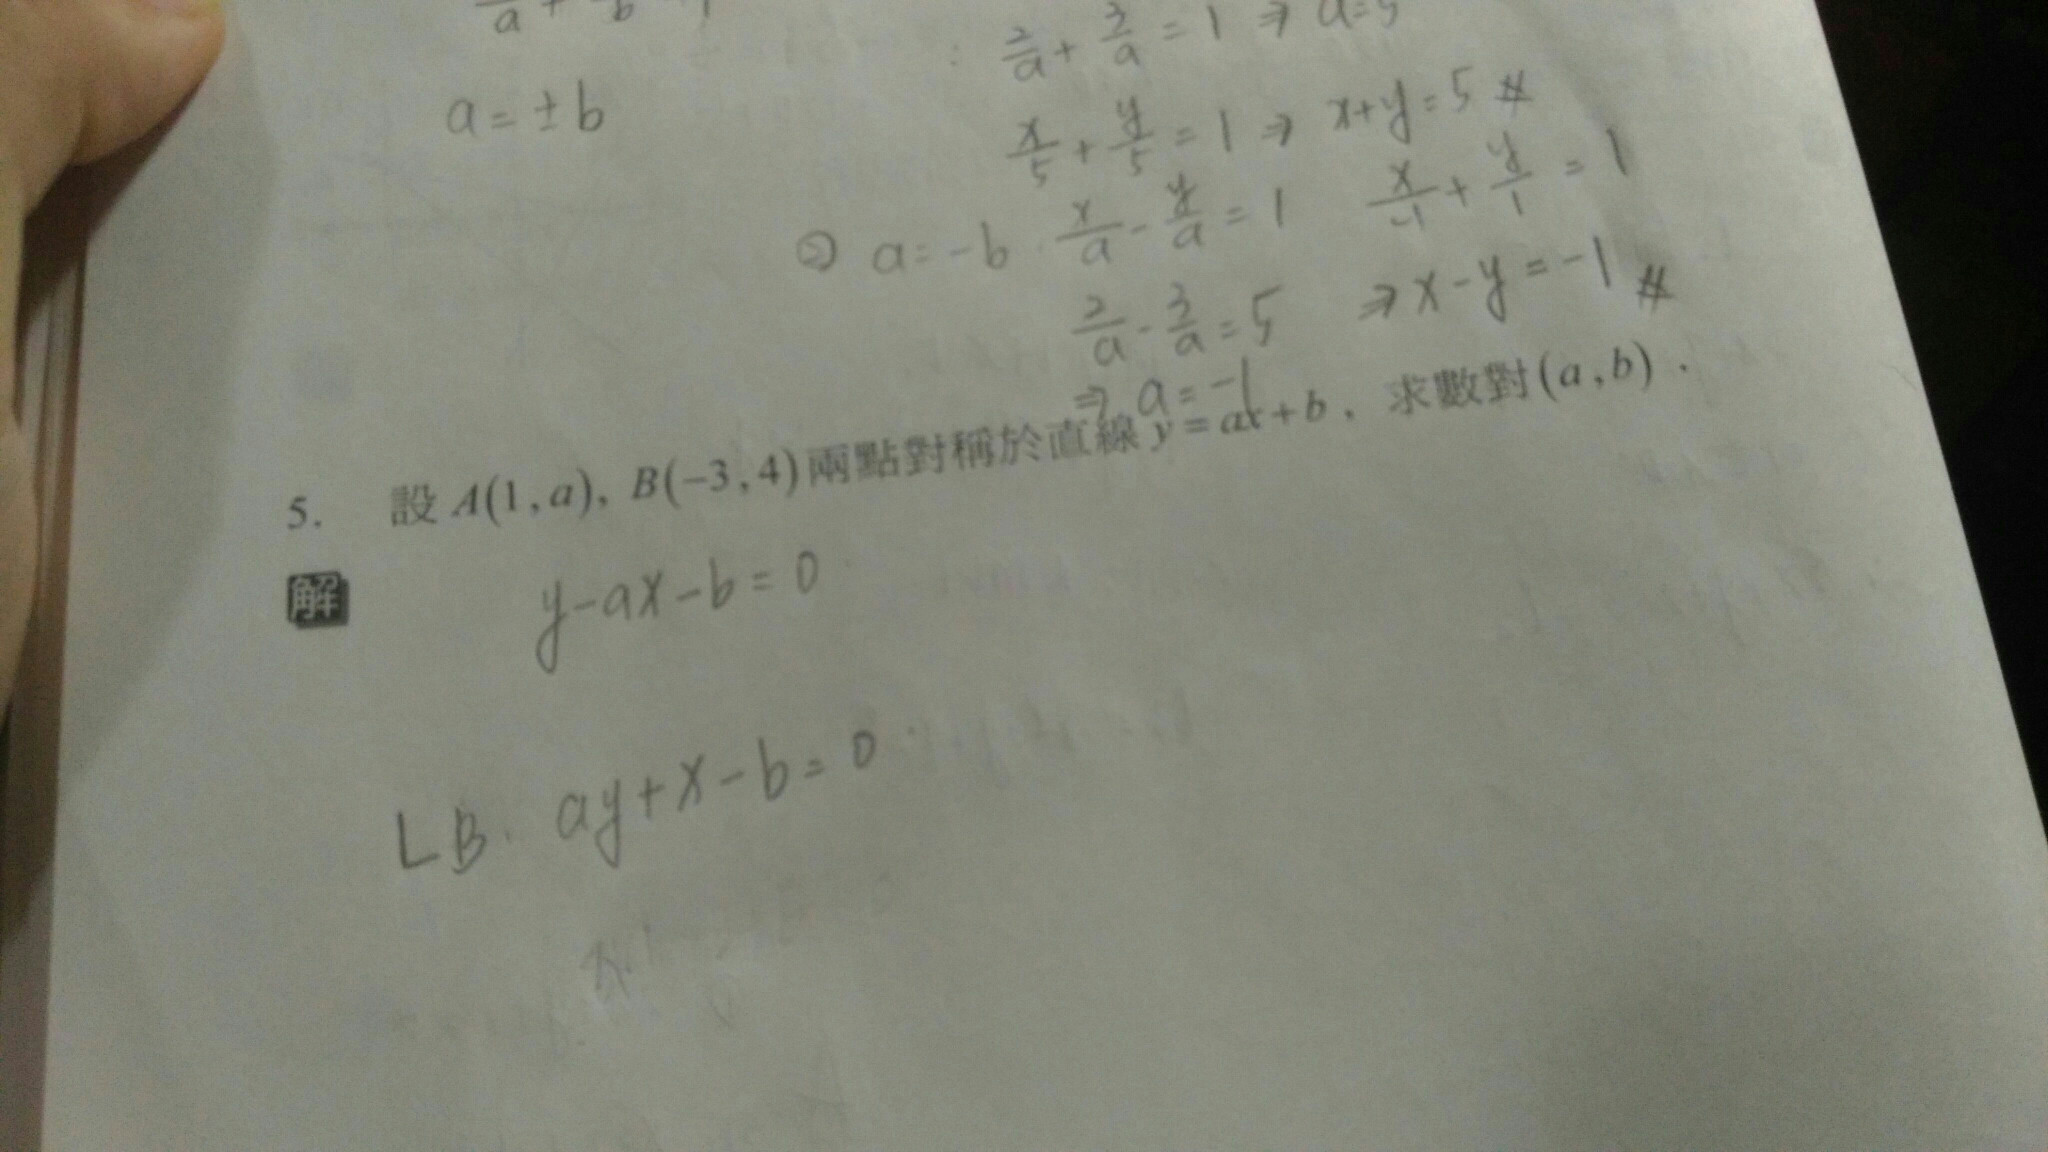 a = ±b
2/a + 3/a = 1 ⇒ a=5
x/5 + y/5 = 1 ⇒ x+y=5 #
② a=-b x/a - y/a = 1 x/-1 + y/1 = 1
2/a - 3/a = 5 ⇒ x-y=-1 #
⇒ a=-1
5. 設 A(1,a), B(-3,4) 兩點對稱於直線 y=ax+b, 求數對(a,b).
解 y-ax-b=0
LB. ay+x-b=0